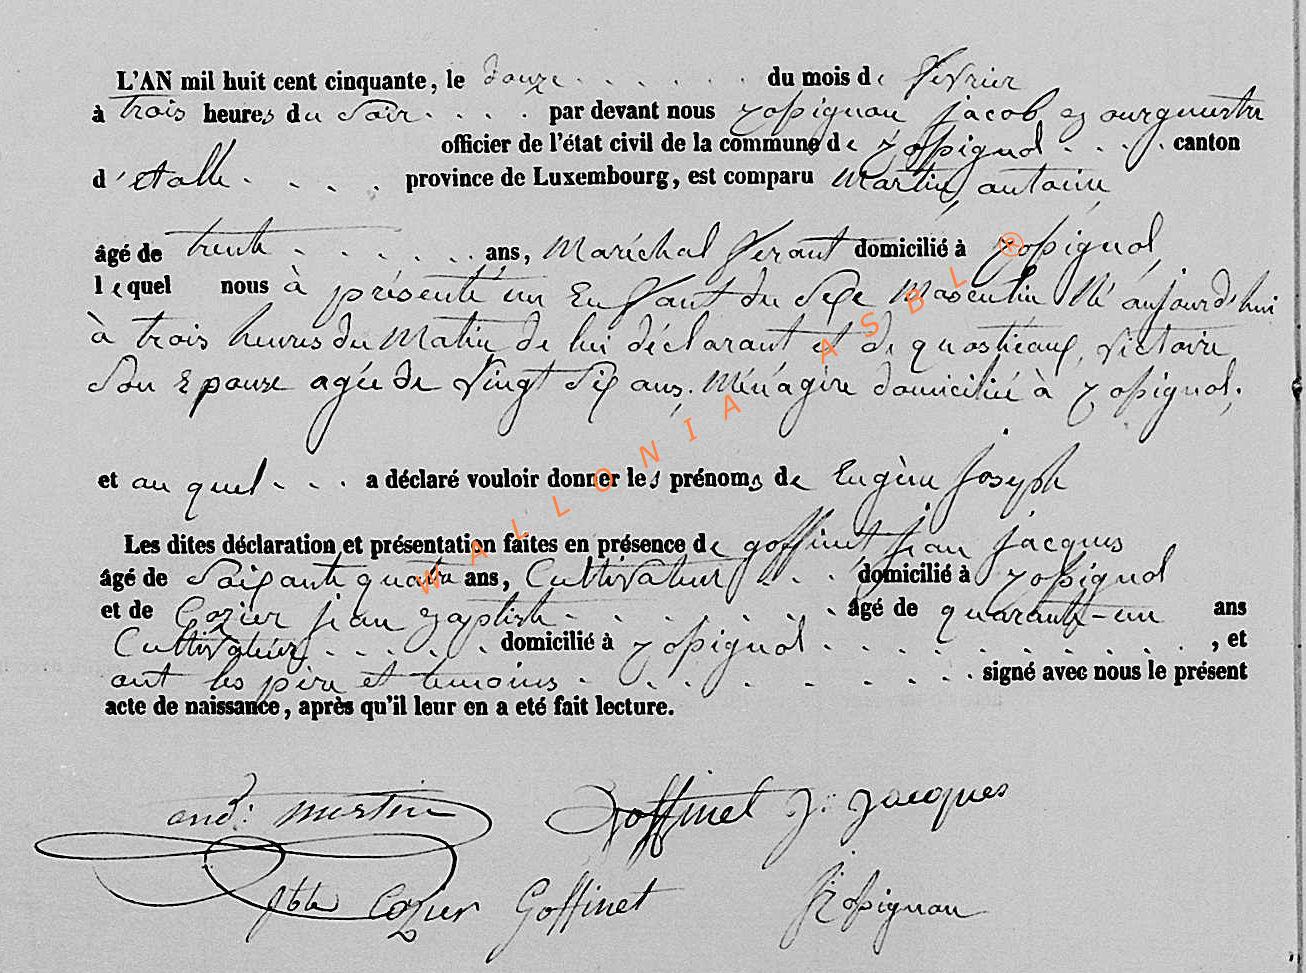 L'AN mil huit cent cinquante, le douze . . . . . . du mois de fevrier
à trois heures du Soir . . . . par devant nous rossignon jacob bourguestre
officier de l'état civil de la commune de rossignol . . . . canton
d'etalle . . . . province de Luxembourg, est comparu Martin, antoine
âgé de trente . . . . . . ans, Maréchal ferant domicilié à rossignol,
lequel nous à présenté un Enfant du Sexe Masculin Né aujourd'hui
à trois heures du Matin de lui déclarant et de quostieaux, victoire
Son Epouse agée de Vingt Six ans, Ménagère domiciliée à rossignol;
et au quel . . . a déclaré vouloir donner les prénoms de Eugène joseph
Les dites déclaration et présentation faites en présence de goffinet jean jacques
âgé de Soixante quatre ans, Cultivateur . . . domicilié à rossignol
et de Cozier jean baptiste . . . . . . . âgé de quarante-un ans
Cultivateur . . . . . domicilié à rossignol . . . . . . . . . . , et
ont les père et temoins . . . . . . . . signé avec nous le présent
acte de naissance, après qu'il leur en a eté fait lecture.
WALLONIA ASBL ®
Martin Goffinet J. Jacques
Cozier Goffinet J Rossignon